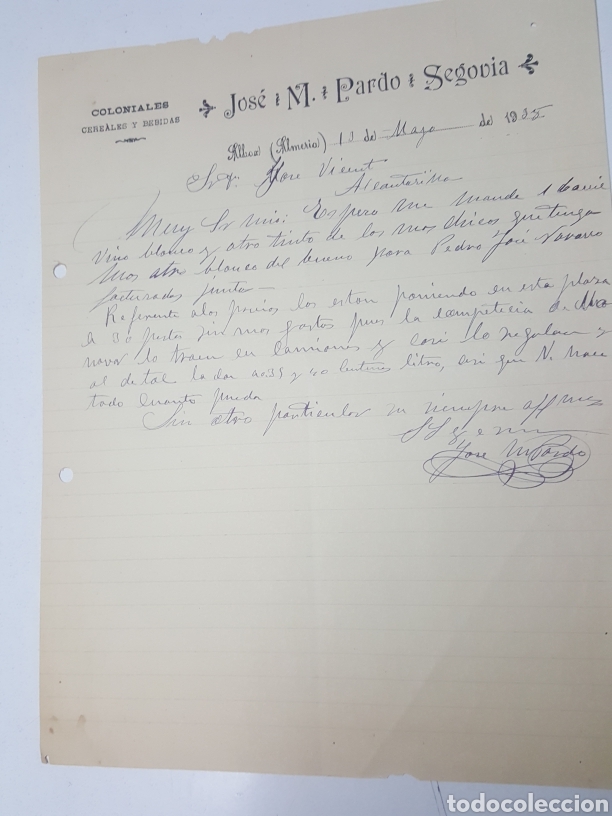 COLONIALES
CEREALES Y BEBIDAS
José M. Pardo Segovia
Albox (Almería) 13 de Mayo de 1935
Sr. Dn. José Vicent
Alcantarilla
Muy Sr mio: Espero me mande 1 barril
vino blanco y otro tinto de los mas chicos que tenga
mas otro blanco del bueno para Pedro José Navarro
facturados juntos
Referente a los precios los estan poniendo en esta plaza
a 30 pesetas sin mas gastos pues la competecia de
lo traen en camiones y casi lo regalan y
al detal lo dan a 0.35 y 40 centimos litro, asi que V. hace
todo cuanto pueda
Sin otro particular su siempre affmo
José M Pardo
todocoleccion